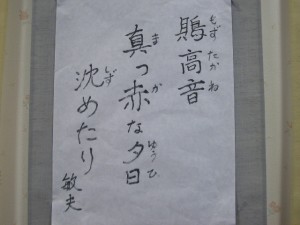 鵙高音
もずたかね
真っ赤な夕日
まかゆうひ
沈めたり
しず
敏夫